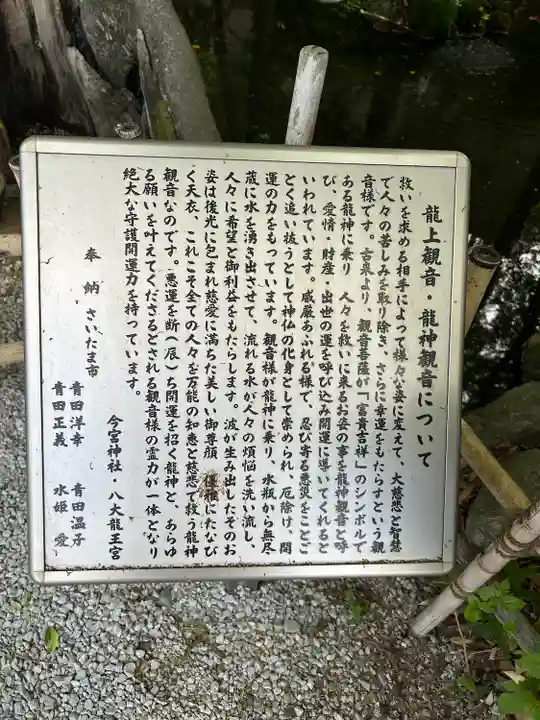 龍上観音・龍神観音について
救いを求める相手によって様々な姿に変えて、大慈悲と智慧
で人々の苦しみを取り除き、さらに幸運をもたらすという観
音様です。古来より、観音菩薩が「富貴吉祥」のシンボルで
ある龍神に乗り 人々を救いに来るお姿の事を龍神観音と呼
び、愛情・財産・出世の運を呼び込み開運に導いてくれると
いわれています。威厳あふれる様で、忍び寄る悪災をことご
とく追い拔うとして神仏の化身として崇められ、厄除け、開
運の力をもっています。観音様が龍神に乗り、水瓶から無尽
蔵に水を湧き出させて、流れる水が人々の煩悩を洗い流し、
人々に希望と御利益をもたらします。波が生み出したそのお
姿は後光に包まれ慈愛に満ちた美しい御尊顔、優雅にたなび
く天衣、これこそ全ての人々を万能の知恵と慈悲で救う龍神
観音なのです。悪運を断(辰)ち開運を招く龍神と、あらゆ
る願いを叶えてくださるとされる観音様の霊力が一体となり
絶大な守護開運力を持っています。
今宮神社・八大龍王宮
奉納 さいたま市
青田洋幸 青田温子
青田正義 水姫 愛